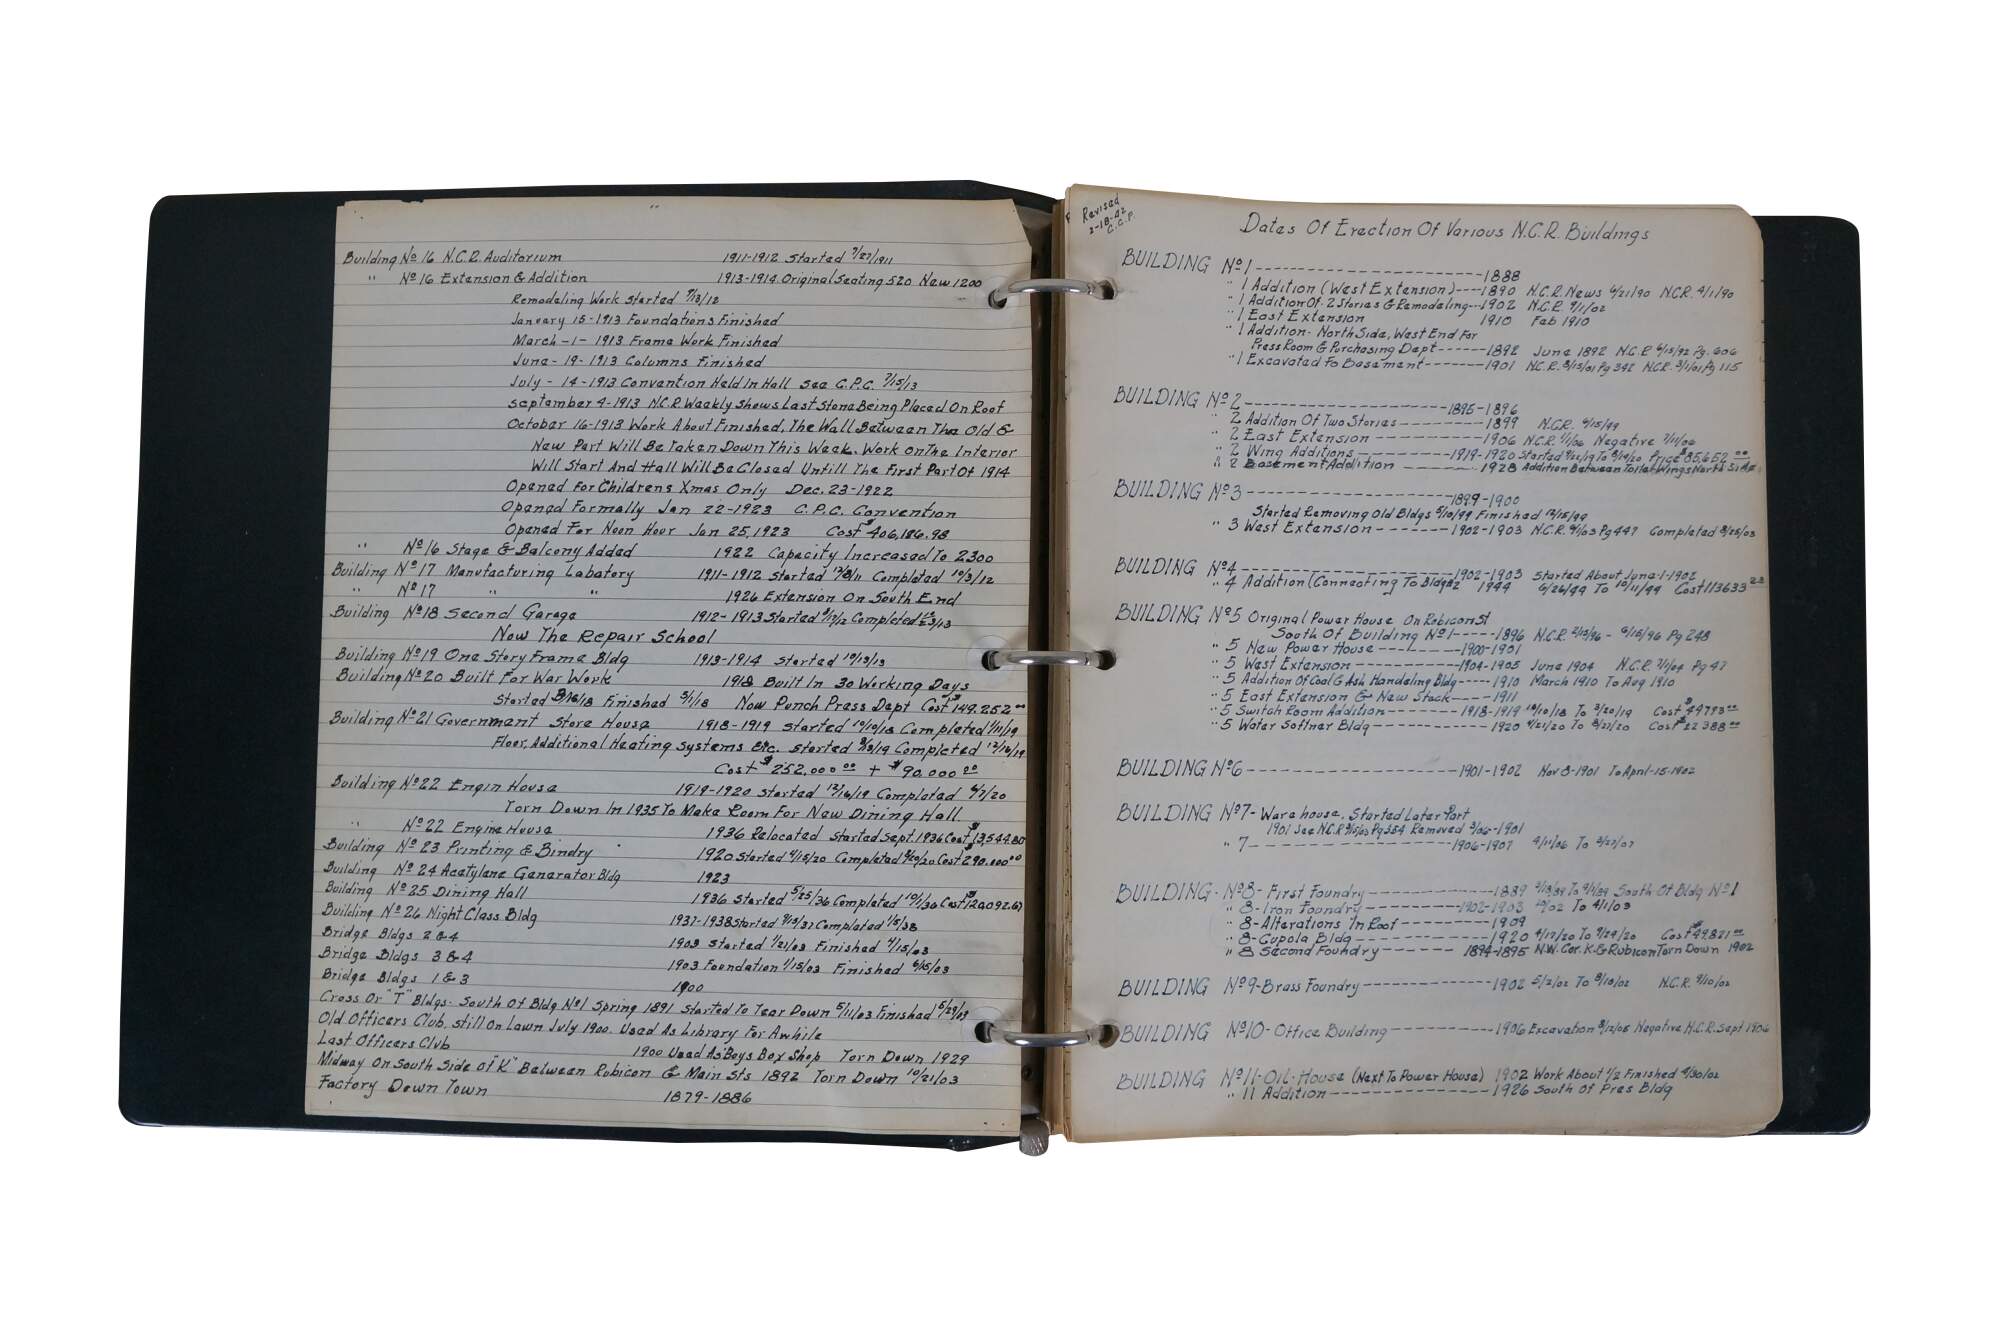 Building No 16 N.C.R. Auditorium 1911-1912 Started 7/27/1911
" No 16 Extension & Addition 1913-1914 Original Seating 520 New 1200
Remodeling Work Started 7/13/12
January 15-1913 Foundations Finished
March-1-1913 Frame Work Finished
June-19-1913 Columns Finished
July-14-1913 Convention Held In Hall See C.P.C. 7/15/13
September 4-1913 N.C.R. Weekly Shows Last Stone Being Placed On Roof
October 16-1913 Work About Finished, The Wall Between The Old &
New Part Will Be Taken Down This Week. Work On The Interior
Will Start And Hall Will Be Closed Untill The First Part Of 1914
Opened For Childrens Xmas Only Dec. 23-1922
Opened Formally Jan 22-1923 C.P.C. Convention
Opened For Noon Hour Jan 25, 1923 Cost $406,186.98
" No 16 Stage & Balcony Added 1922 Capacity Increased To 2300
Building No 17 Manufacturing Labatory 1911-1912 Started 12/8/11 Completed 10/3/12
" No 17 " " 1926 Extension On South End
Building No 18 Second Garage 1912-1913 Started 9/17/12 Completed
Now The Repair School
Building No 19 One Story Frame Bldg 1913-1914 Started 10/13/13
Building No 20 Built For War Work 1918 Built In 30 Working Days
Started Finished 5/1/18 Now Punch Press Dept Cost $149.252 00
Building No 21 Government Store House 1918-1919 Started 10/10/18 Completed 1/11/19
Floor, Additional Heating Systems Etc. Started Completed 12/16/19
Cost $252,000 00 + $90.000 00
Building No 22 Engin House 1919-1920 Started 12/16/19 Completed 6/7/20
Torn Down In 1935 To Make Room For New Dining Hall
" No 22 Engine House 1936 Relocated Started Sept. 1936 Cost $13,544.80
Building No 23 Printing & Bindry 1920 Started 4/15/20 Completed Cost $290.000 00
Building No 24 Acetylene Generator Bldg 1923
Building No 25 Dining Hall 1936 Started 5/25/36 Completed 10/1/36 Cost $120,092.67
Building No 26 Night Class Bldg 1937-1938 Started 9/13/37 Completed 1/5/38
Bridge Bldgs 2 & 4 1903 Started 1/21/03 Finished 4/15/03
Bridge Bldgs 3 & 4 1903 Foundation 1/15/03 Finished 6/15/03
Bridge Bldgs 1 & 3 1900
Cross Or "T" Bldgs. South Of Bldg No 1 Spring 1891 Started To Tear Down 5/11/03 Finished 5/29/03
Old Officers Club, Still On Lawn July 1900. Used As Library For Awhile
Last Officers Club 1900 Used As Boys Box Shop Torn Down 1929
Midway On South Side Of "K" Between Rubicon & Main Sts 1892 Torn Down 10/21/03
Factory Down Town 1879-1886
Revised
2-18-42
C.C.P.
Dates Of Erection Of Various N.C.R. Buildings
BUILDING No 1 1888
" 1 Addition (West Extension) 1890 N.C.R. News 6/21/90 N.C.R. 4/1/90
" 1 Addition Of 2 Stories & Remodeling 1902 N.C.R. 9/1/02
" 1 East Extension 1910 Feb 1910
" 1 Addition - North Side, West End For
Press Room & Purchasing Dept 1892 June 1892 N.C.R. 6/15/92 Pg. 606
" 1 Excavated Fo Basement 1901 N.C.R. 8/15/01 Pg 342 N.C.R. 3/1/01 Pg 115
BUILDING No 2 1895-1896
" 2 Addition Of Two Stories 1899 N.C.R. 4/15/99
" 2 East Extension 1906 N.C.R. 1/1/06 Negative 7/11/06
" 2 Wing Additions 1919-1920 Started 9/22/19 To 8/19/20 Price $85,652 00
" 2 Basement Addition 1928 Addition Between Toilet Wings North Side
BUILDING No 3 1899-1900
Started Removing Old Bldgs 5/10/99 Finished 12/15/99
" 3 West Extension 1902-1903 N.C.R. 9/1/03 Pg 447 Completed 8/25/03
BUILDING No 4 1902-1903 Started About June-1-1902
" 4 Addition (Connecting To Bldg #2 1944 6/26/44 To 10/11/44 Cost 113633 23
BUILDING No 5 Original Power House On Rubicon St
South Of Building No 1 1896 N.C.R. 2/15/96 - 6/15/96 Pg 248
" 5 New Power House 1900-1901
" 5 West Extension 1904-1905 June 1904 N.C.R. 7/1/04 Pg 47
" 5 Addition Of Coal & Ash Handeling Bldg 1910 March 1910 To Aug 1910
" 5 East Extension & New Stack 1911
" 5 Switch Room Addition 1918-1919 10/10/18 To 3/20/19 Cost $49793 00
" 5 Water Softner Bldg 1920 4/21/20 To 8/21/20 Cost $22388 00
BUILDING No 6 1901-1902 Nov 8-1901 To April-15-1902
BUILDING No 7- Warehouse. Started Later Part
1901 See N.C.R. Pg 354 Removed 3/06-1901
" 7 1906-1907 4/11/06 To 3/27/07
BUILDING No 8- First Foundry 1889 To South Of Bldg No 1
" 8- Iron Foundry 1902-1903 10/02 To 4/1/03
" 8- Alterations In Roof 1909
" 8- Cupola Bldg 1920 4/17/20 To 9/29/20 Cost $49.871 00
" 8 Second Foundry 1894-1895 N.W. Cor. K. & Rubicon Torn Down 1902
BUILDING No 9- Brass Foundry 1902 5/2/02 To 8/18/02 N.C.R. 9/10/02
BUILDING No 10- Office Building 1906 Excavation Negative N.C.R. Sept 1906
BUILDING No 11- Oil-House (Next To Power House) 1902 Work About 1/2 Finished 4/30/02
" 11 Addition 1926 South Of Pres Bldg